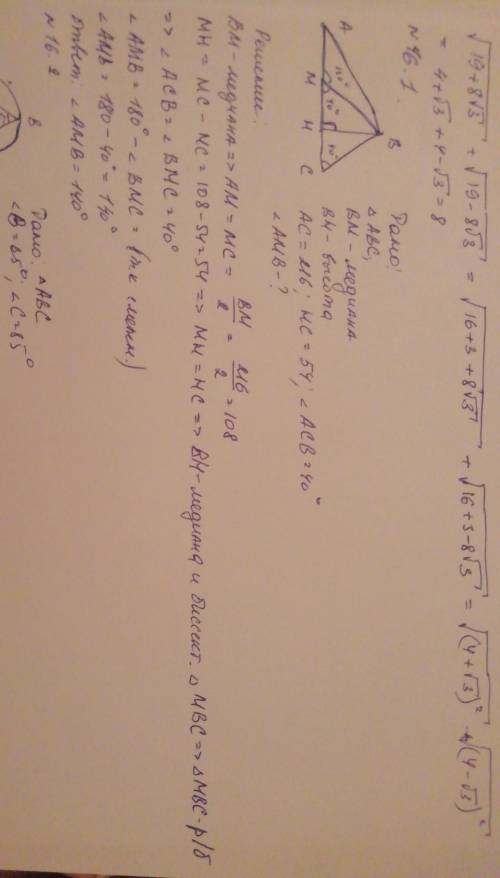 √19+8√3 + √19-8√3 = √16+3+8√3 + √16+3-8√3 = √(4+√3)² + √(4-√3)²
= 4+√3+4-√3 = 8
№16.1.
A
M
H
C
B
40°
40°
Дано:
△ABC,
BM - медиана
BH - высота
AC = 216; HC = 54; ∠ACB = 40°
∠AMB - ?
Решение:
BM - медиана => AM = MC = BM/2 = 216/2 = 108
MH = MC - HC = 108 - 54 = 54 => MH = HC => BH - медиана и биссект. △MBC => △MBC - р/б
=> ∠ACB = ∠BMC = 40°
∠AMB = 180° - ∠BMC = (т.к смежн.)
∠AMB = 180 - 40° = 140°
Ответ: ∠AMB = 140°
№16.2
B
Дано: △ABC
∠B = 65°; ∠C = 85°